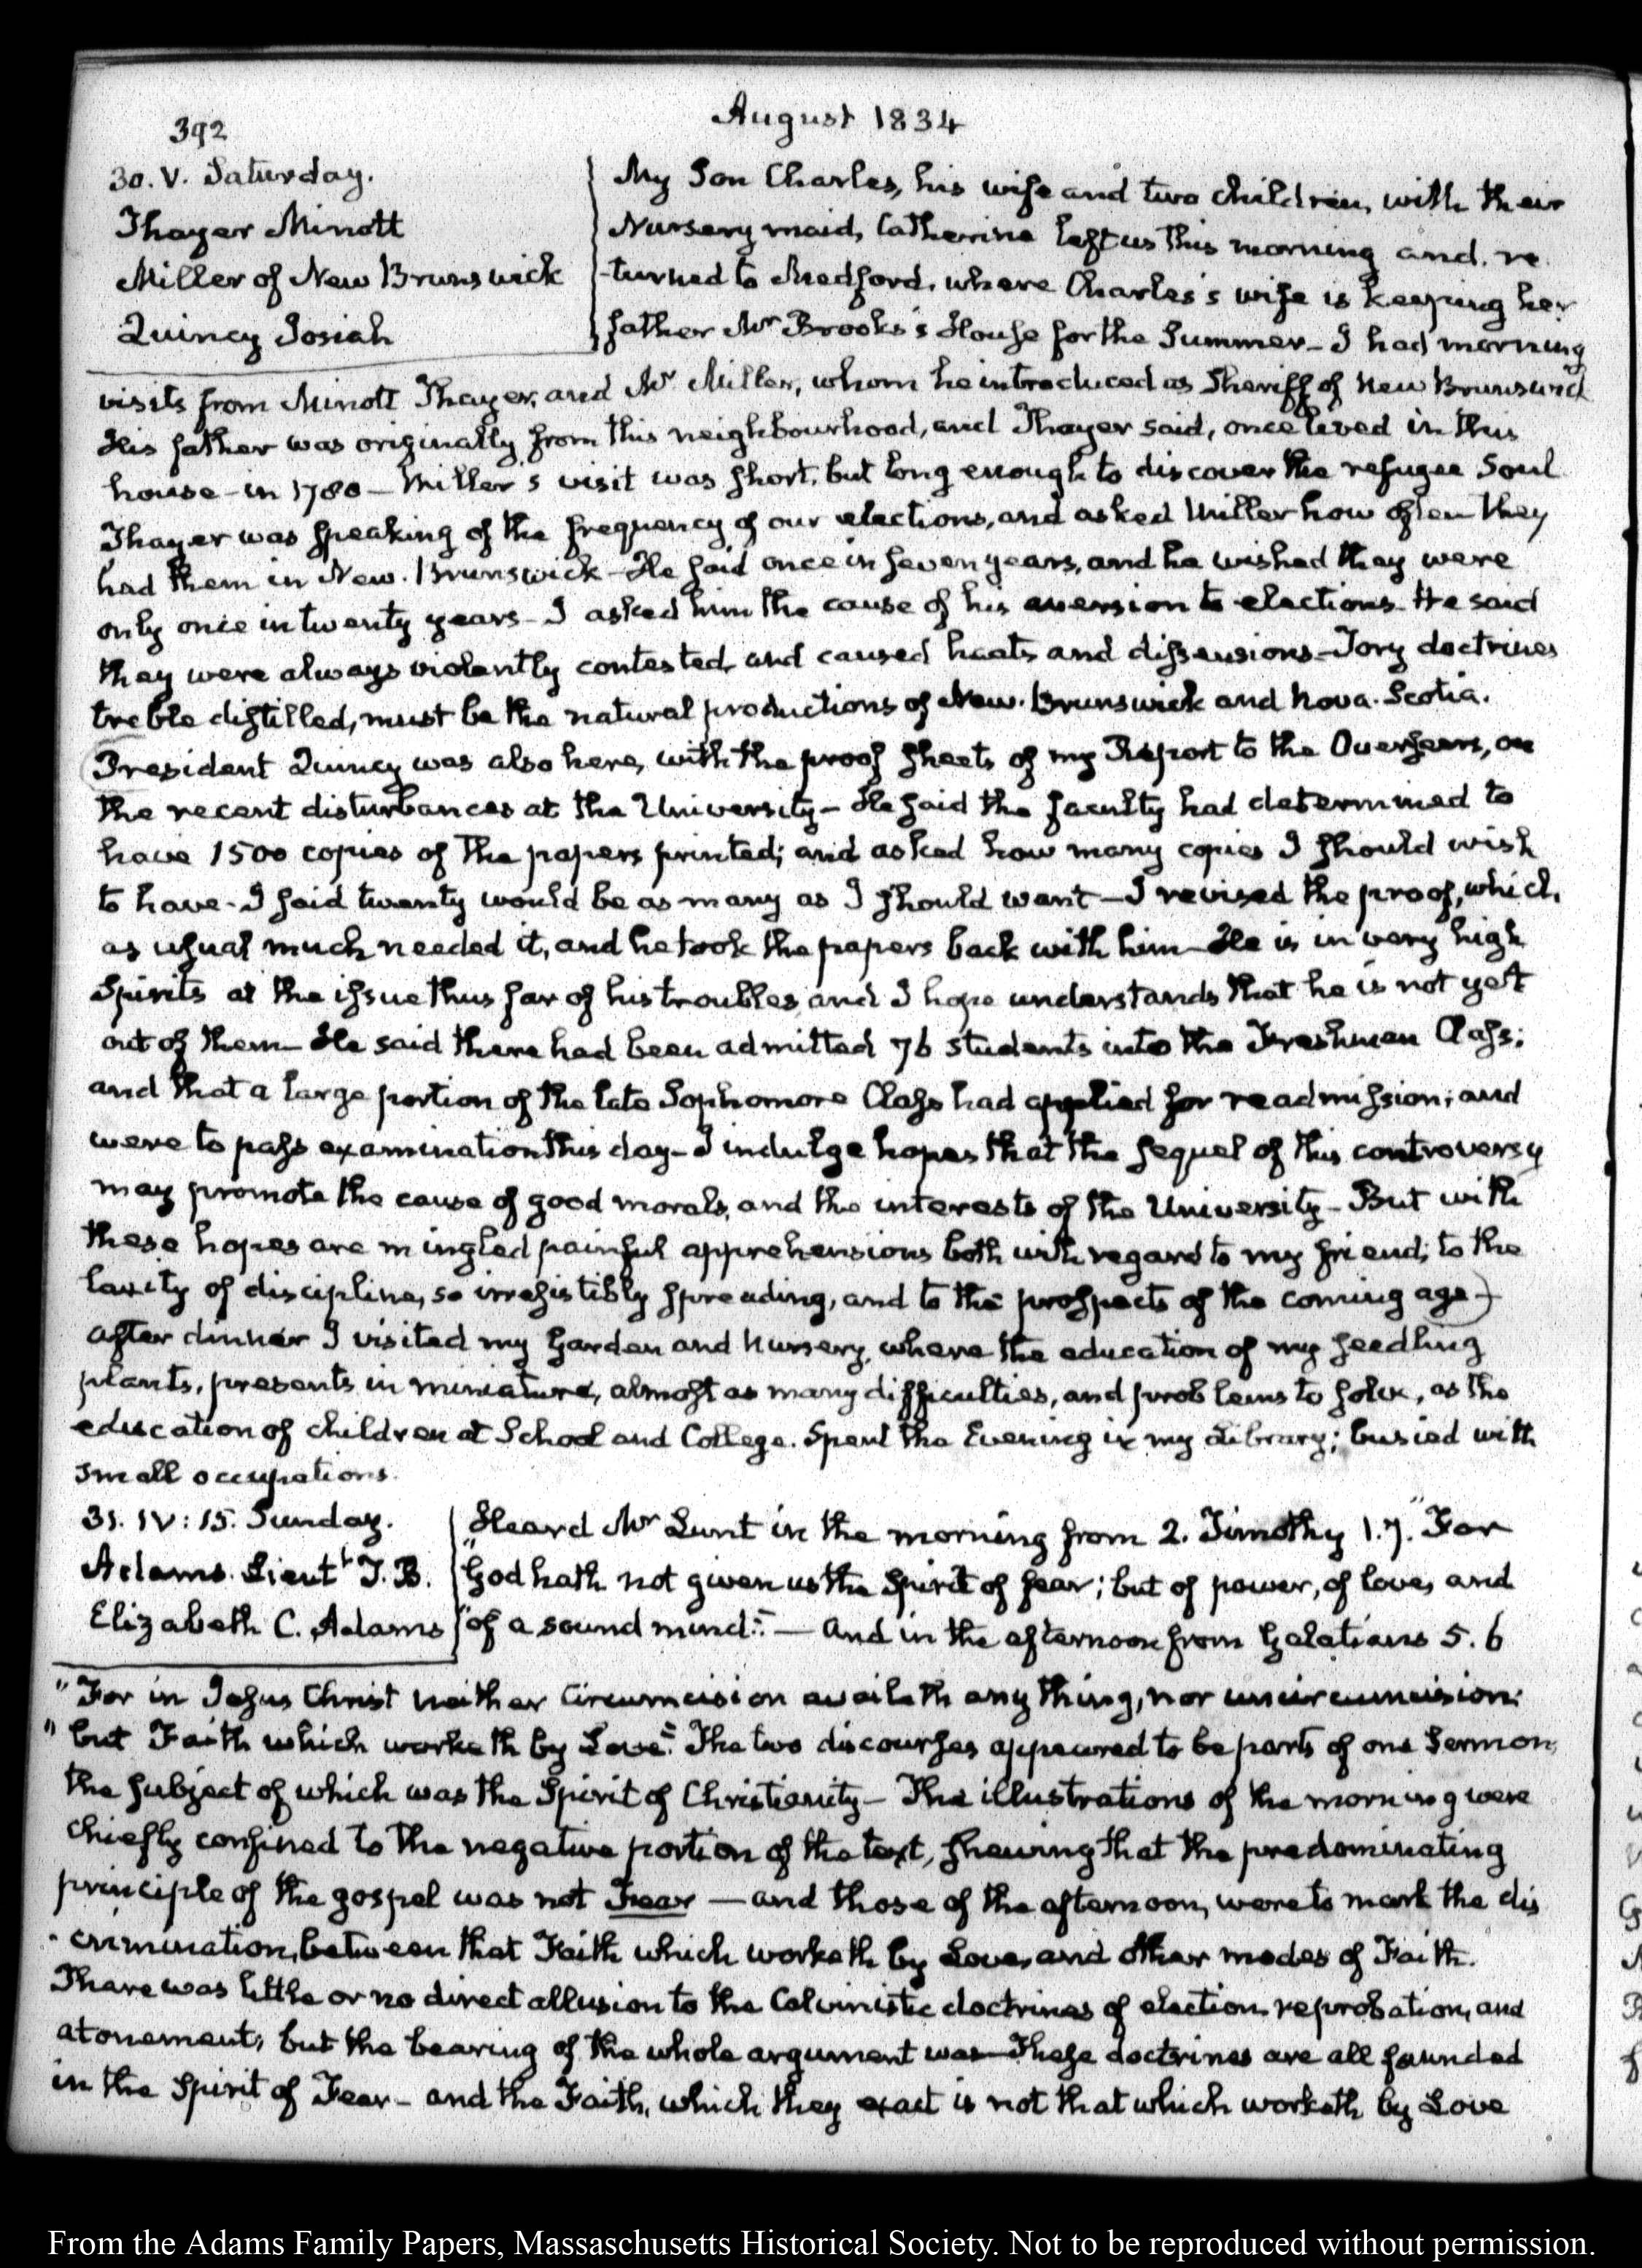 392
August 1834
30. V. Saturday.
Thayer Minott
Miller of New Brunswick
Quincy Josiah
My Son Charles, his wife and two children, with their
Nursery maid, Catherine left us this morning and re
-turned to Medford, where Charles's wife is keeping her
father Mr Brooks's House for the Summer - I had morning
visits from Minott Thayer, and Mr Miller, whom he introduced as Sheriff of New Brunswick
His father was originally from this neighbourhood, and Thayer said, once lived in this
house - in 1780 - Miller's visit was short, but long enough to discover the refugee Soul
Thayer was speaking of the frequency of our elections, and asked Miller how often they
had them in New-Brunswick - He said once in seven years, and he wished they were
only once in twenty years - I asked him the cause of his aversion to elections - He said
they were always violently contested and caused heats and dissensions - Tory doctrines
treble distilled, must be the natural productions of New-Brunswick and Nova-Scotia.
President Quincy was also here, with the proof sheets of my Report to the Overseers, on
the recent disturbances at the University - He said the faculty had determined to
have 1500 copies of the papers printed; and asked how many copies I should wish
to have - I said twenty would be as many as I should want - I revised the proof, which,
as usual much needed it, and he took the papers back with him - He is in very high
Spirits at the issue thus far of his troubles, and I hope understands that he is not yet
out of them - He said there had been admitted 76 students into the Freshman Class;
and that a large portion of the late Sophomore Class had applied for readmission; and
were to pass examination this day - I indulge hopes that the sequel of this controversy
may promote the cause of good morals, and the interests of the University - But with
these hopes are mingled painful apprehensions both with regard to my friend; to the
laxity of discipline, so irresistibly spreading, and to the prospects of the coming age -)
after dinner I visited my Garden and Nursery, where the education of my seedling
plants, presents in miniature, almost as many difficulties, and problems to solve, as the
education of children at School and College. Spent the Evening in my Library; busied with
small occupations.
31. IV: 15. Sunday.
Adams. Lieutt T. B.
Elizabeth C. Adams
Heard Mr Lunt in the morning from 2. Timothy 1.7. "For
"God hath not given us the Spirit of fear; but of power, of love, and
"of a sound mind." - And in the afternoon from Galatians 5. 6
"For in Jesus Christ neither Circumcision availeth any thing, nor uncircumcision;
"but Faith which worketh by Love." The two discourses appeared to be parts of one Sermon,
the subject of which was the Spirit of Christianity - The illustrations of the morning were
chiefly confined to the negative portion of the text, shewing that the predominating
principle of the gospel was not Fear - and those of the afternoon, were to mark the dis
-crimination, between that Faith which worketh by Love, and other modes of Faith.
There was little or no direct allusion to the Calvinistic doctrines of election, reprobation, and
atonement, but the bearing of the whole argument was - These doctrines are all founded
in the Spirit of Fear - and the Faith, which they exact is not that which worketh by Love
From the Adams Family Papers, Massaschusetts Historical Society. Not to be reproduced without permission.